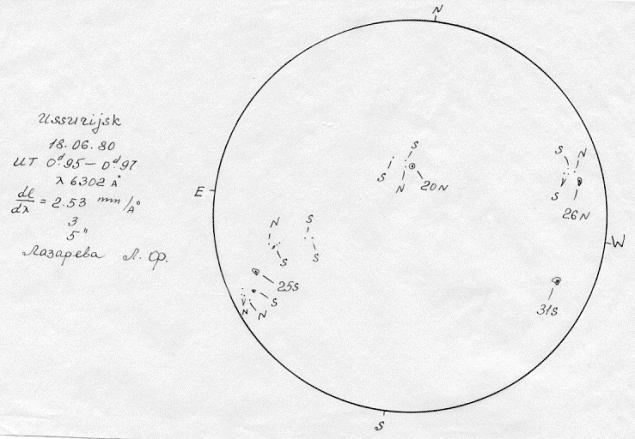 N
Ussurijsk
18.06.80
UT 0ᵈ.95 — 0ᵈ.97
λ 6302 Å
dl/dλ = 2.53 mm/Å
3
5"
Лазарева Л. Ф.
S
S
N
20N
S
N
S
26N
E
W
N
S
S
S
25S
S
N
N
31S
S